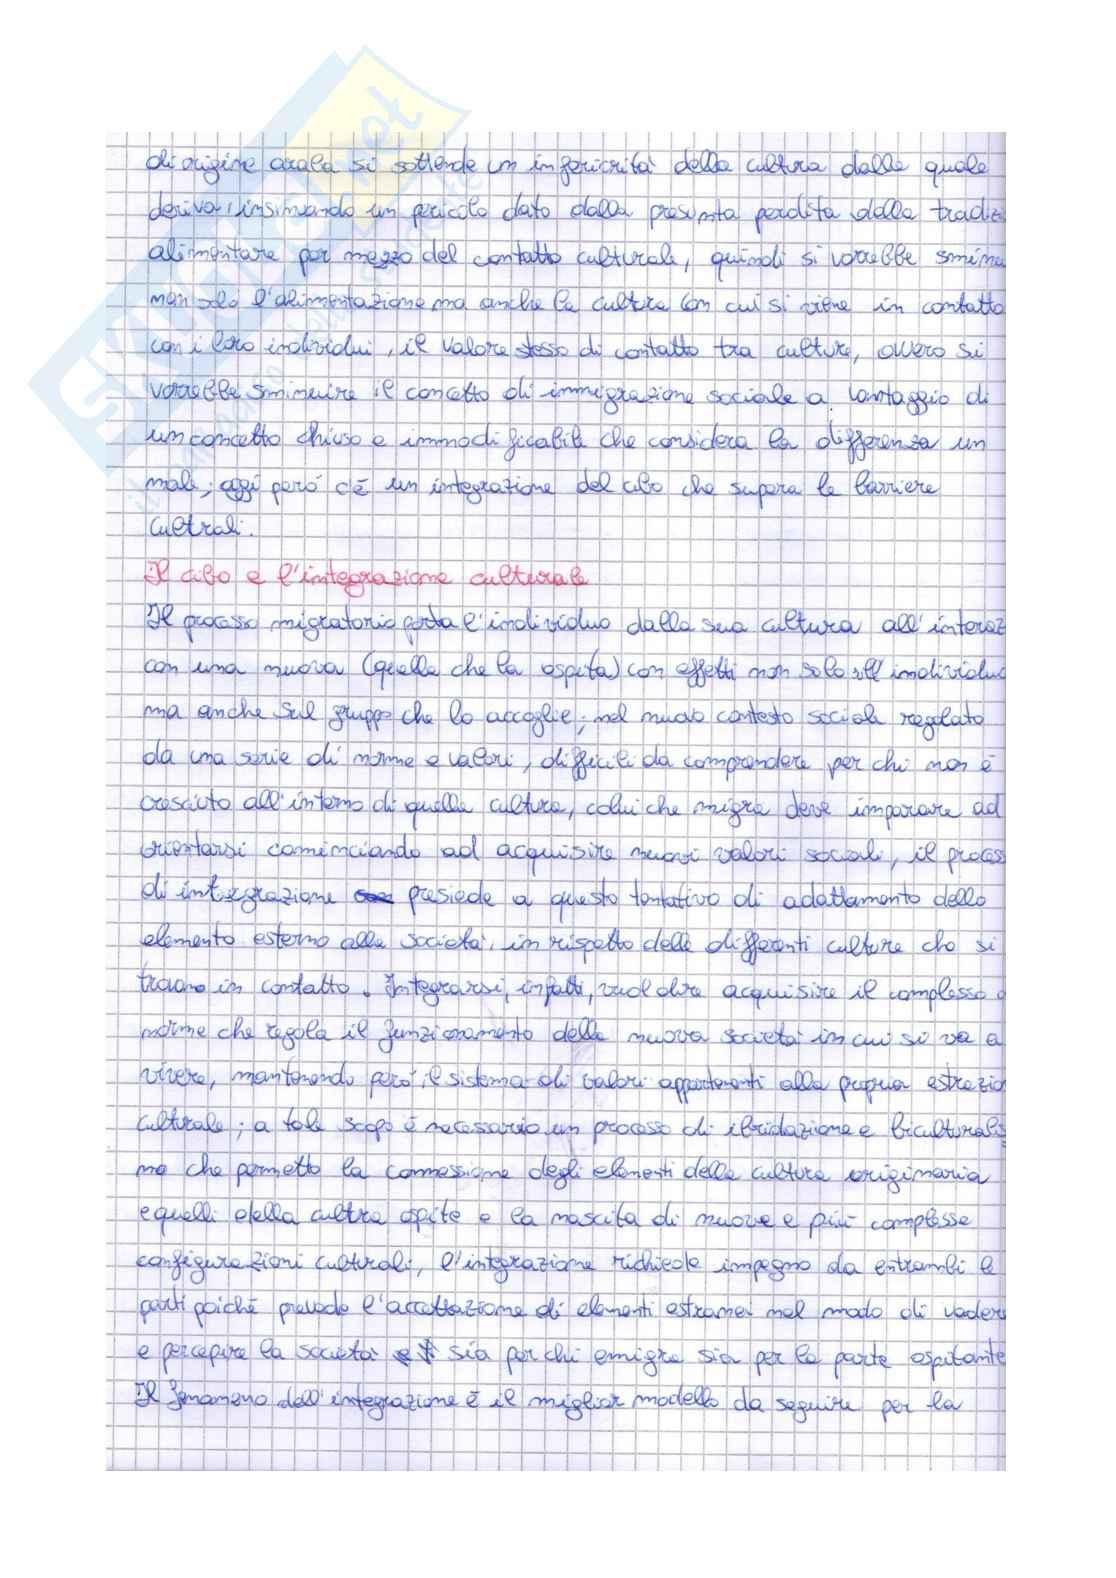 SKUOLA.net
di origine araba si sottende un inferiorità della cultura dalle quale
deriva, insinuando un pericolo dato dalla presunta perdita della tradiz
alimentare per mezzo del contatto culturale, quindi si vorrebbe sminu
non solo l'alimentazione ma anche la cultura con cui si viene in contatto
con i loro individui, il valore stesso di contatto tra culture, ovvero si
vorrebbe sminuire il concetto di immigrazione sociale a vantaggio di
un concetto chiuso e immodificabile che considera la differenza un
male; oggi però c'è un integrazione del cibo che supera le barriere
cultrali.
Il cibo e l'integrazione culturale
Il processo migratorio porta l'individuo dalla sua cultura all'interaz
con una nuova (quella che la ospita) con effetti non solo sull'individuo
ma anche sul gruppo che lo accoglie; nel nuovo contesto sociale regolato
da una serie di norme e valori, difficili da comprendere per chi non è
cresciuto all'interno di quella cultura, colui che migra deve imparare ad
orientarsi cominciando ad acquisire nuovi valori sociali, il process
di integrazione presiede a questo tentativo di adattamento dello
elemento esterno alla società, in rispetto delle differenti culture che si
trovano in contatto. Integrarsi, infatti, vuol dire acquisire il complesso
norme che regola il funzionamento della nuova società in cui si va a
vivere, mantenendo però il sistema di valori appartenenti alla propria estrazio
culturale; a tale scopo è necessario un processo di ibridazione e biculturalis
mo che permetto la connessione degli elementi della cultura originaria
e quelli della cultra ospite e la nascita di nuove e più complesse
configurazioni culturali, l'integrazione richiede impegno da entrambi le
parti poiché prevede l'accettazione di elementi estranei nel modo di vedere
e percepire la società sia per chi emigra sia per la parte ospitante
Il fenomeno dell'integrazione è il miglior modello da seguire per la